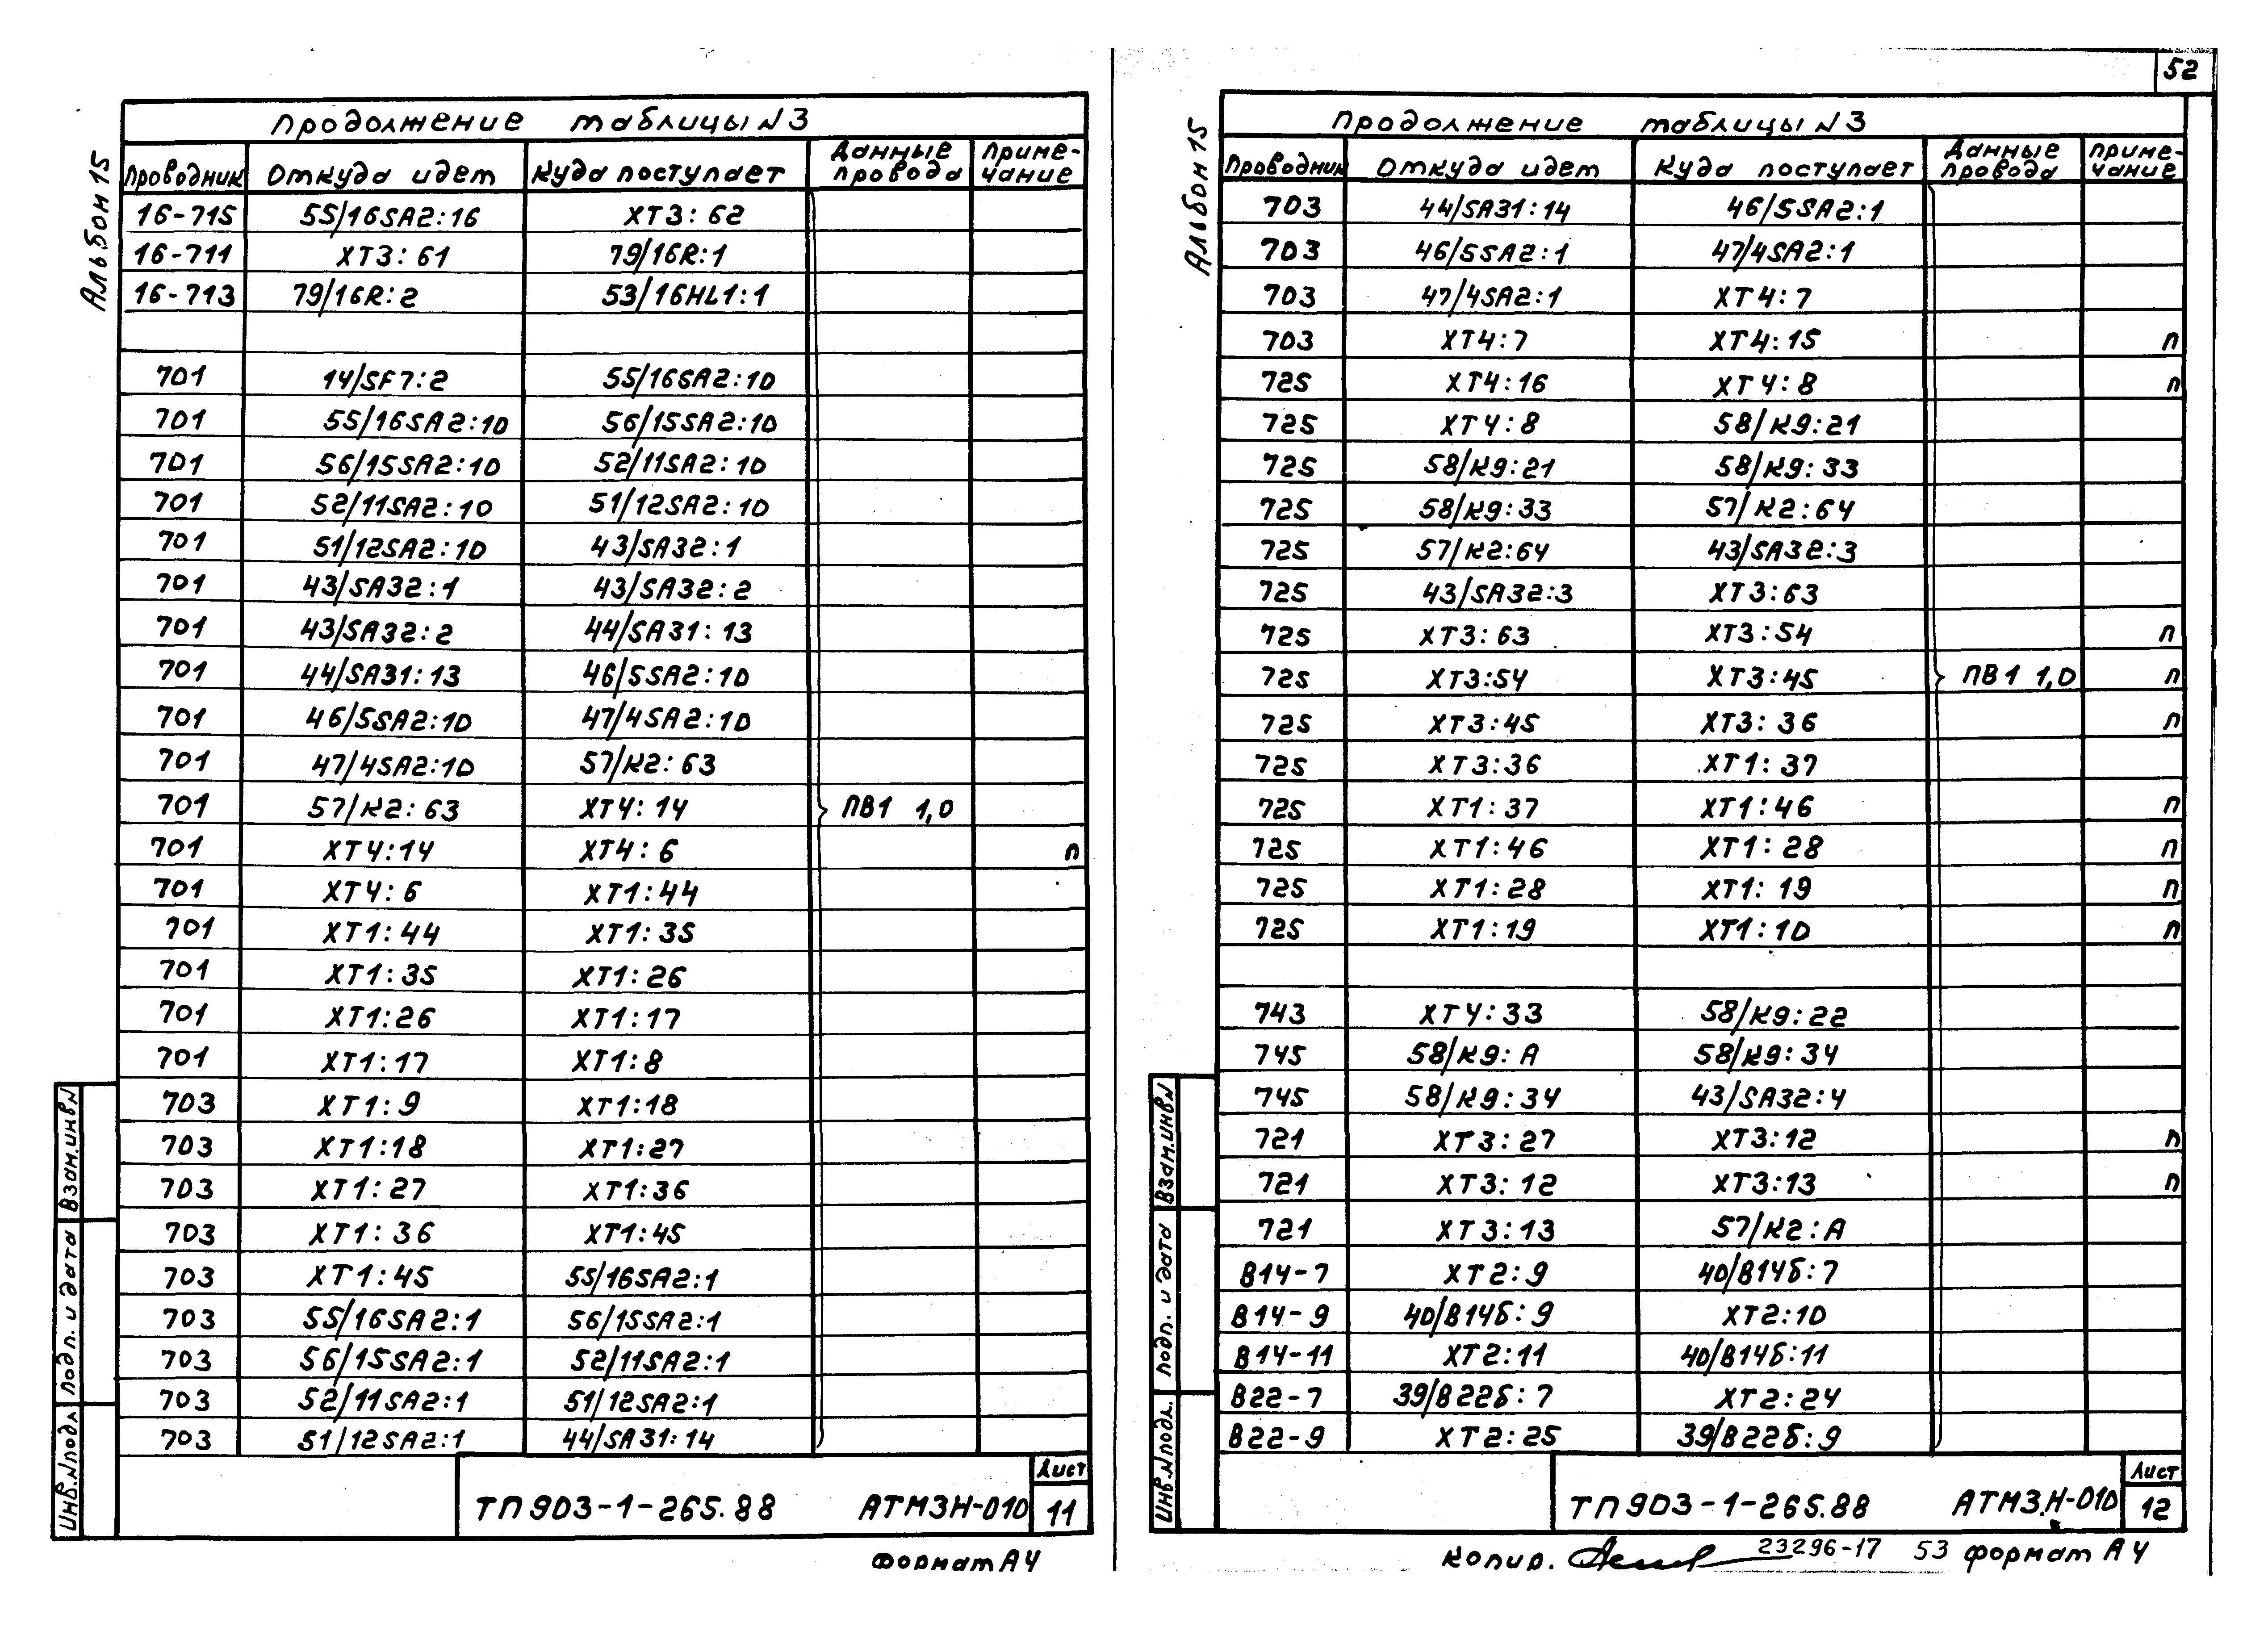 52
Альбом 15
Продолжение таблицы N 3
Проводник Откуда идет Куда поступает Данные провода Приме-чание
16-715 55/16SA2:16 XT3:62
16-711 XT3:61 79/16R:1
16-713 79/16R:2 53/16HL1:1
701 14/SF7:2 55/16SA2:10
701 55/16SA2:10 56/15SA2:10
701 56/15SA2:10 52/11SA2:10
701 52/11SA2:10 51/12SA2:10
701 51/12SA2:10 43/SA32:1
701 43/SA32:1 43/SA32:2
701 43/SA32:2 44/SA31:13
701 44/SA31:13 46/5SA2:10
701 46/5SA2:10 47/4SA2:10
701 47/4SA2:10 57/К2:63
701 57/К2:63 XT4:14 ПВ1 1,0
701 XT4:14 XT4:6 п
701 XT4:6 XT1:44
701 XT1:44 XT1:35
701 XT1:35 XT1:26
701 XT1:26 XT1:17
701 XT1:17 XT1:8
703 XT1:9 XT1:18
703 XT1:18 XT1:27
703 XT1:27 XT1:36
703 XT1:36 XT1:45
703 XT1:45 55/16SA2:1
703 55/16SA2:1 56/15SA2:1
703 56/15SA2:1 52/11SA2:1
703 52/11SA2:1 51/12SA2:1
703 51/12SA2:1 44/SA31:14
Инв.N подл Подп. и дата Взам.инв N
ТП 903-1-265.88 АТМ3Н-010 Лист 11
Формат А4
Альбом 15
Продолжение таблицы N 3
Проводник Откуда идет Куда поступает Данные провода Приме-чание
703 44/SA31:14 46/5SA2:1
703 46/5SA2:1 47/4SA2:1
703 47/4SA2:1 XT4:7
703 XT4:7 XT4:15 п
725 XT4:16 XT4:8 п
725 XT4:8 58/К9:21
725 58/К9:21 58/К9:33
725 58/К9:33 57/К2:64
725 57/К2:64 43/SA32:3
725 43/SA32:3 XT3:63
725 XT3:63 XT3:54 п
725 XT3:54 XT3:45 ПВ1 1,0 п
725 XT3:45 XT3:36 п
725 XT3:36 XT1:37
725 XT1:37 XT1:46 п
725 XT1:46 XT1:28 п
725 XT1:28 XT1:19 п
725 XT1:19 XT1:10 п
743 XT4:33 58/К9:22
745 58/К9:А 58/К9:34
745 58/К9:34 43/SA32:4
721 XT3:27 XT3:12 п
721 XT3:12 XT3:13 п
721 XT3:13 57/К2:А
В14-7 XT2:9 40/В14б:7
В14-9 40/В14б:9 XT2:10
В14-11 XT2:11 40/В14б:11
В22-7 39/В22б:7 XT2:24
В22-9 XT2:25 39/В22б:9
Инв.N подл. Подп. и дата Взам.инв N
ТП 903-1-265.88 АТМ3.Н-010 Лист 12
Копир. 23296-17 53 Формат А4